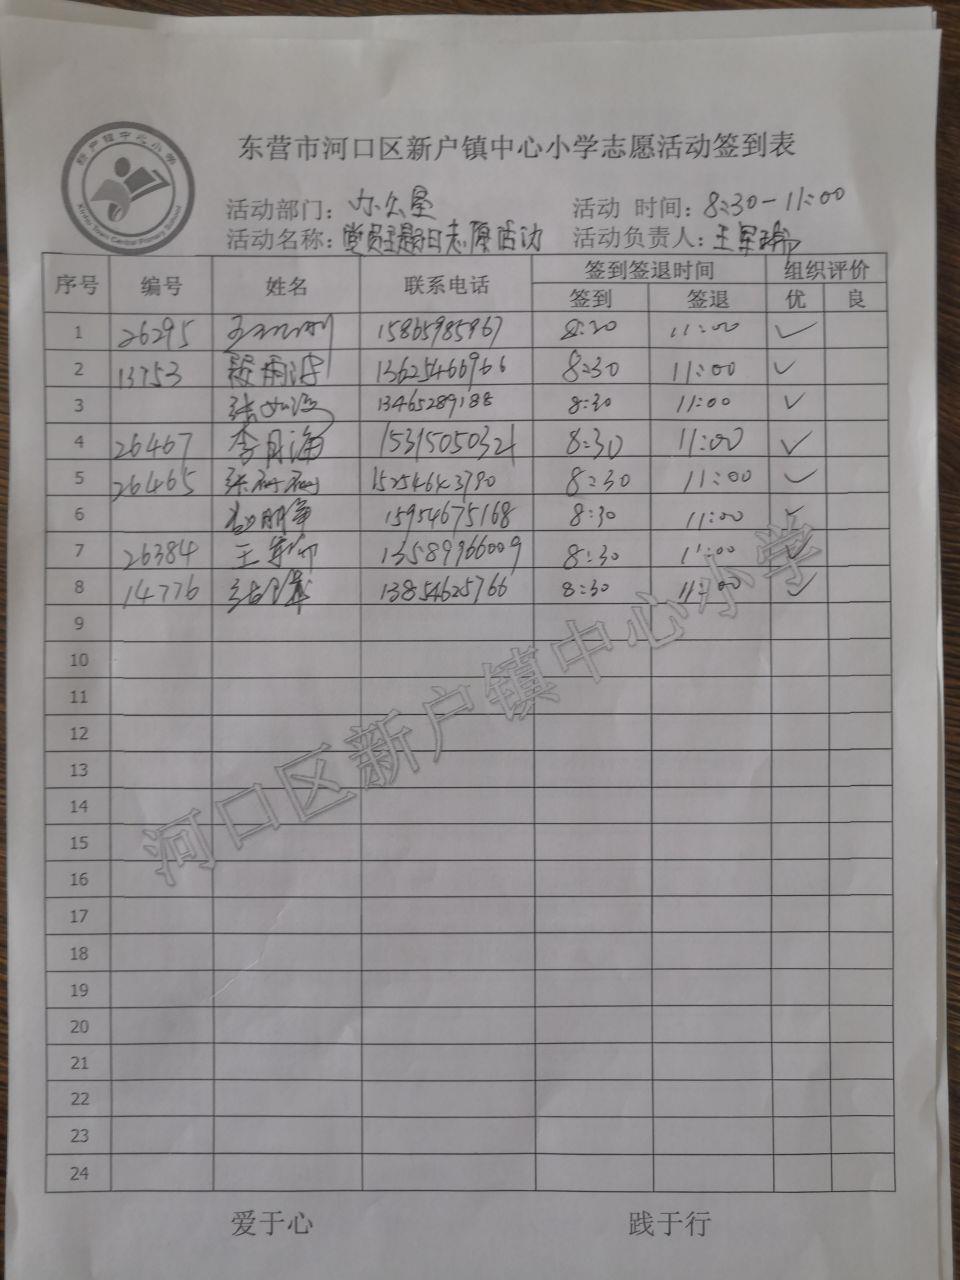 新户镇中心小学
Xinhu Town Central Primary School
东营市河口区新户镇中心小学志愿活动签到表
活动部门：办公室 活动 时间：8:30-11:00
活动名称：党员主题日志愿活动 活动负责人：王军
序号 编号 姓名 联系电话 签到签退时间 组织评价
签到 签退 优 良
1 26295 15865985967 8:30 11:00 ✓
2 13753 13625466966 8:30 11:00 ✓
3 张 13465289188 8:30 11:00 ✓
4 26467 李月海 15315050321 8:30 11:00 ✓
5 26465 张 15254643790 8:30 11:00 ✓
6 15954675168 8:30 11:00 ✓
7 26384 王军 13589966009 8:30 11:00 ✓
8 14776 13854625766 8:30 11:00 ✓
9
10
11
12
13
14
15
16
17
18
19
20
21
22
23
24
河口区新户镇中心小学
爱于心 践于行